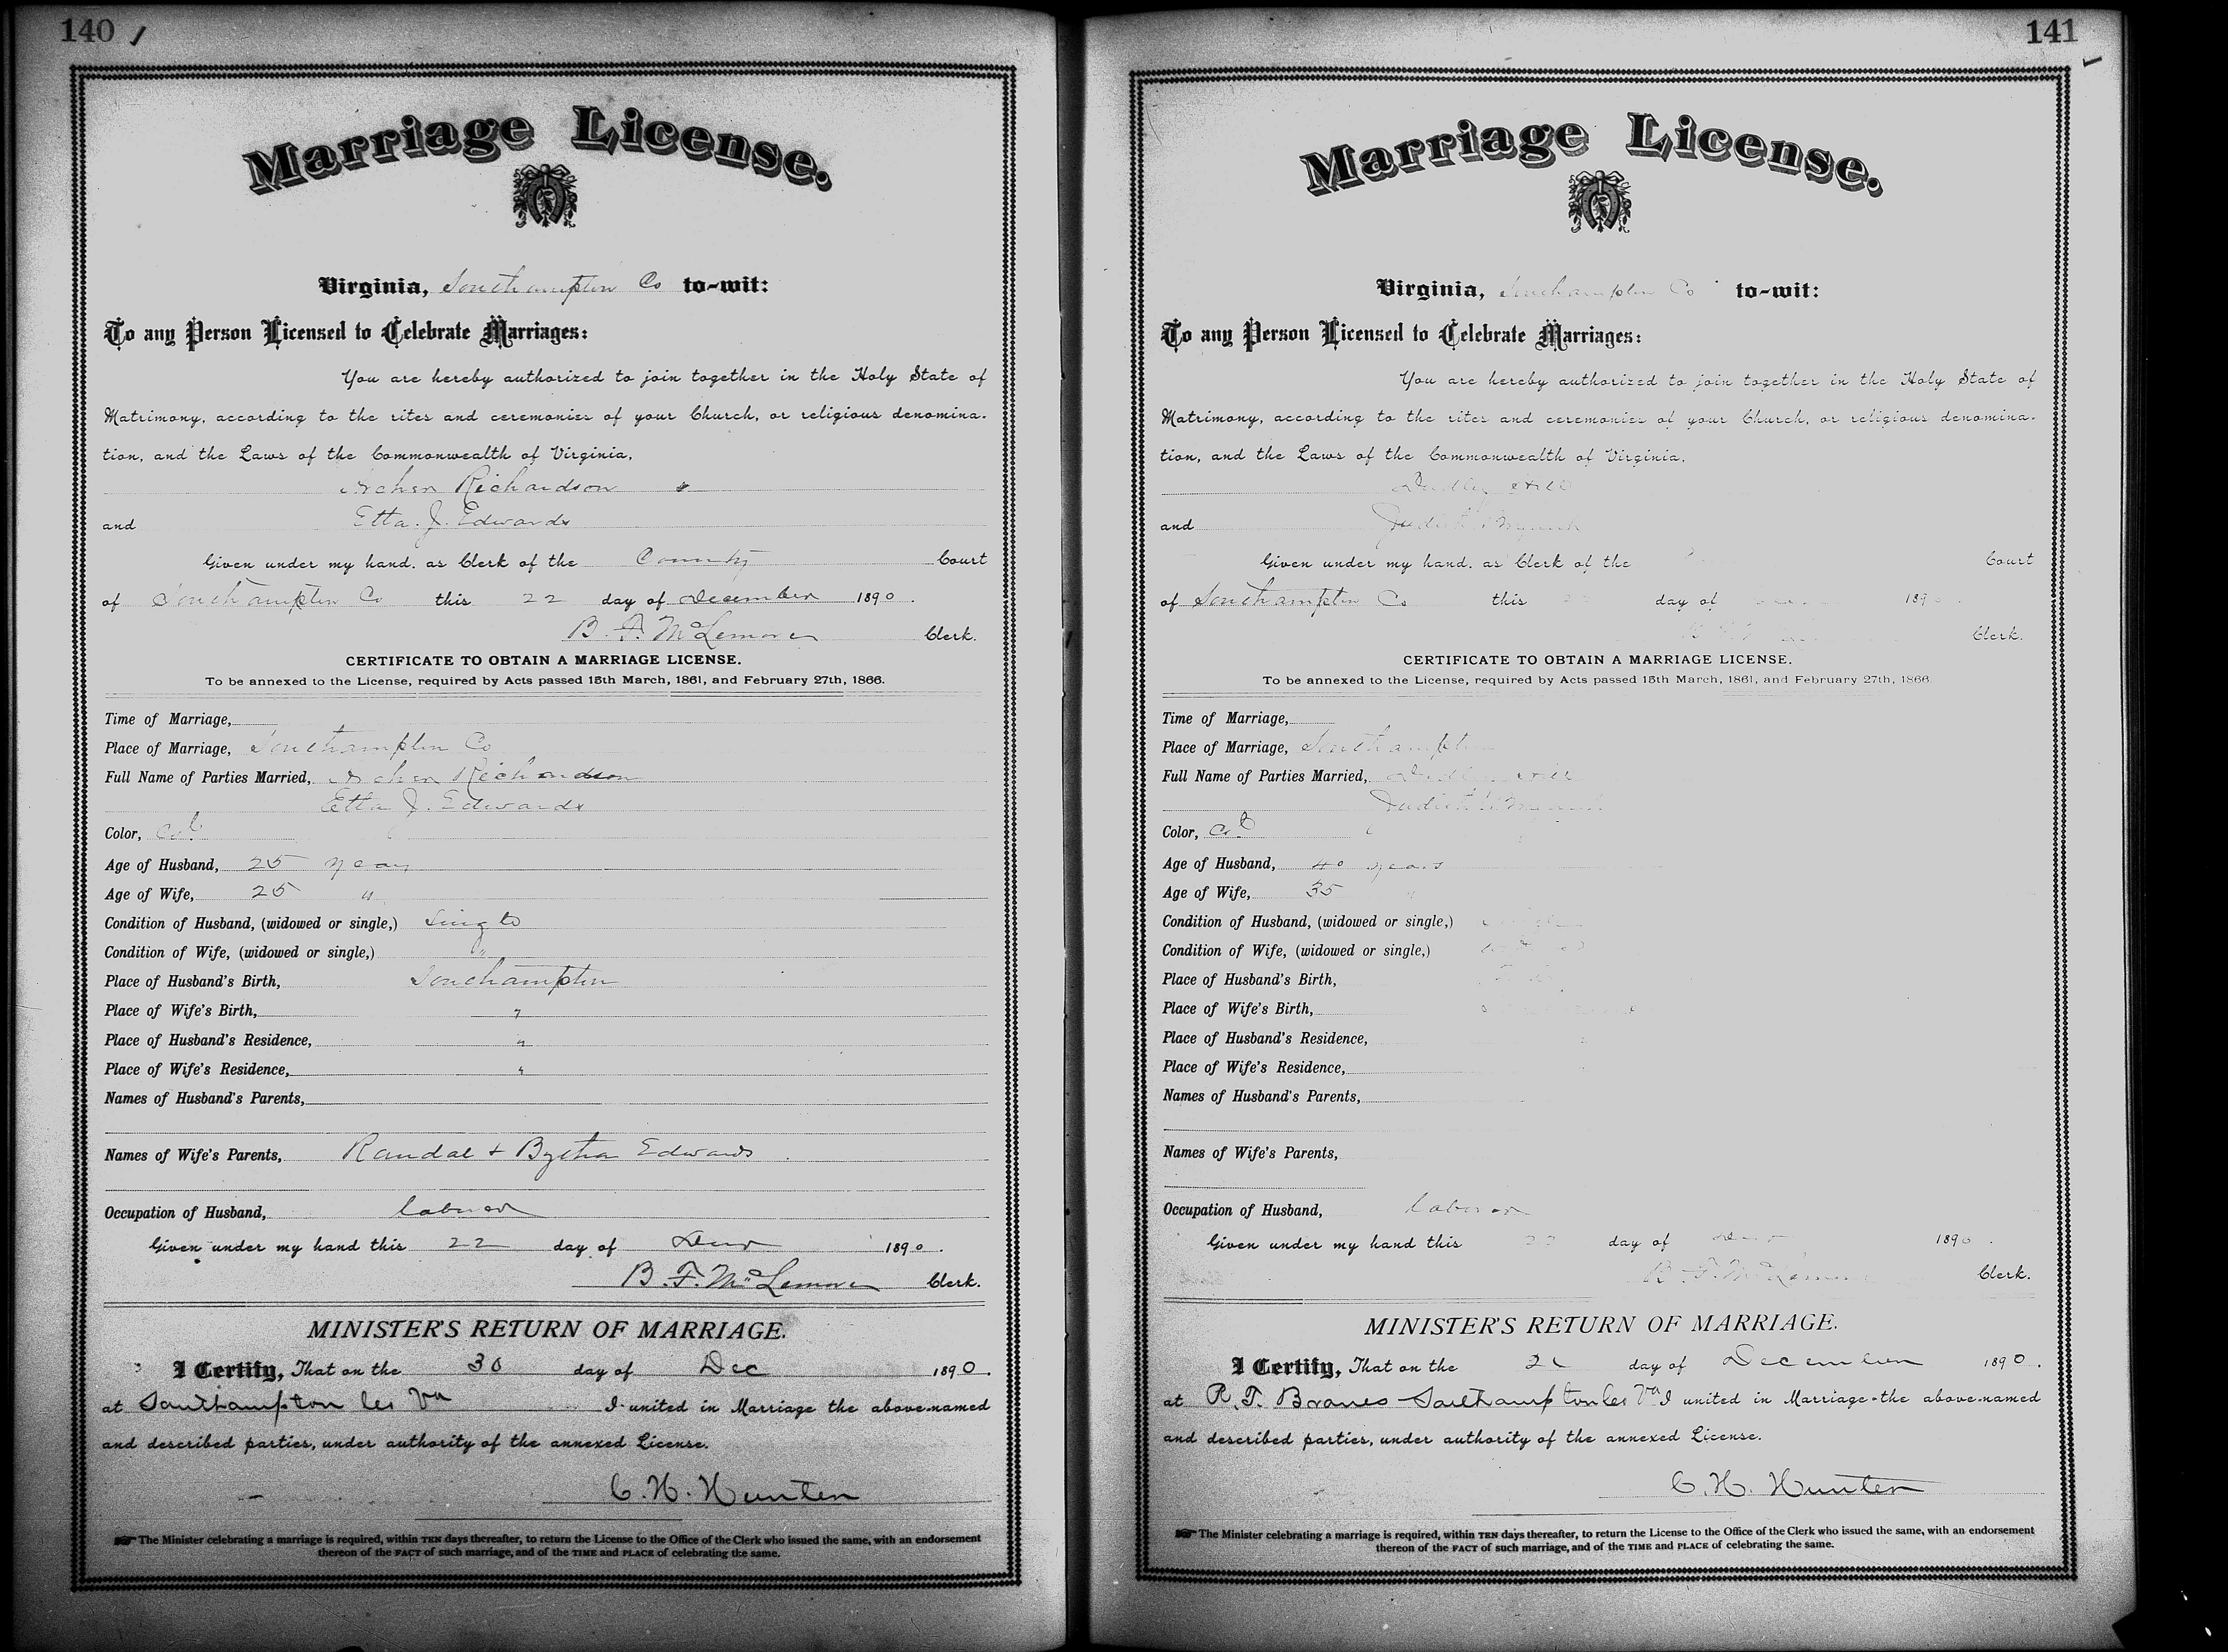 140
Marriage License.
Virginia, Southampton Co to-wit:
To any Person Licensed to Celebrate Marriages:
You are hereby authorized to join together in the Holy State of
Matrimony, according to the rites and ceremonies of your Church, or religious denomina-
tion, and the Laws of the Commonwealth of Virginia,
Archer Richardson
and Etta. J. Edwards
Given under my hand, as Clerk of the County Court
of Southampton Co this 22 day of December 1890.
B. F. McLemore Clerk.
CERTIFICATE TO OBTAIN A MARRIAGE LICENSE.
To be annexed to the License, required by Acts passed 15th March, 1861, and February 27th, 1866.
Time of Marriage,
Place of Marriage, Southampton Co
Full Name of Parties Married, Archer Richardson
Etta J. Edwards
Color, Col
Age of Husband, 25 years
Age of Wife, 25 "
Condition of Husband, (widowed or single,) Single
Condition of Wife, (widowed or single,) "
Place of Husband's Birth, Southampton
Place of Wife's Birth, "
Place of Husband's Residence, "
Place of Wife's Residence, "
Names of Husband's Parents,
Names of Wife's Parents, Randal + Bytha Edwards
Occupation of Husband, laborer
Given under my hand this 22 day of Decr 1890.
B. F. McLemore Clerk.
MINISTER'S RETURN OF MARRIAGE.
I Certify, That on the 30 day of Dec 1890.
at Southampton Co Va I united in Marriage the above-named
and described parties, under authority of the annexed License.
C. H. Hunter
The Minister celebrating a marriage is required, within TEN days thereafter, to return the License to the Office of the Clerk who issued the same, with an endorsement
thereon of the FACT of such marriage, and of the TIME and PLACE of celebrating the same.
141
Marriage License.
Virginia, Southampton Co to-wit:
To any Person Licensed to Celebrate Marriages:
You are hereby authorized to join together in the Holy State of
Matrimony, according to the rites and ceremonies of your Church, or religious denomina-
tion, and the Laws of the Commonwealth of Virginia,
Dudley Hill
and Judith
Given under my hand, as Clerk of the Court
of Southampton Co this day of 189
Clerk.
CERTIFICATE TO OBTAIN A MARRIAGE LICENSE.
To be annexed to the License, required by Acts passed 15th March, 1861, and February 27th, 1866.
Time of Marriage,
Place of Marriage, Southampton
Full Name of Parties Married, Dudley Hill
Judith
Color, Col
Age of Husband, 40 years
Age of Wife, 35 "
Condition of Husband, (widowed or single,)
Condition of Wife, (widowed or single,)
Place of Husband's Birth,
Place of Wife's Birth,
Place of Husband's Residence,
Place of Wife's Residence,
Names of Husband's Parents,
Names of Wife's Parents,
Occupation of Husband, laborer
Given under my hand this 22 day of Decr 1890.
B. F. McLemore Clerk.
MINISTER'S RETURN OF MARRIAGE.
I Certify, That on the day of December 1890.
at R. T. Southampton Co Va I united in Marriage the above-named
and described parties, under authority of the annexed License.
C. H. Hunter
The Minister celebrating a marriage is required, within TEN days thereafter, to return the License to the Office of the Clerk who issued the same, with an endorsement
thereon of the FACT of such marriage, and of the TIME and PLACE of celebrating the same.